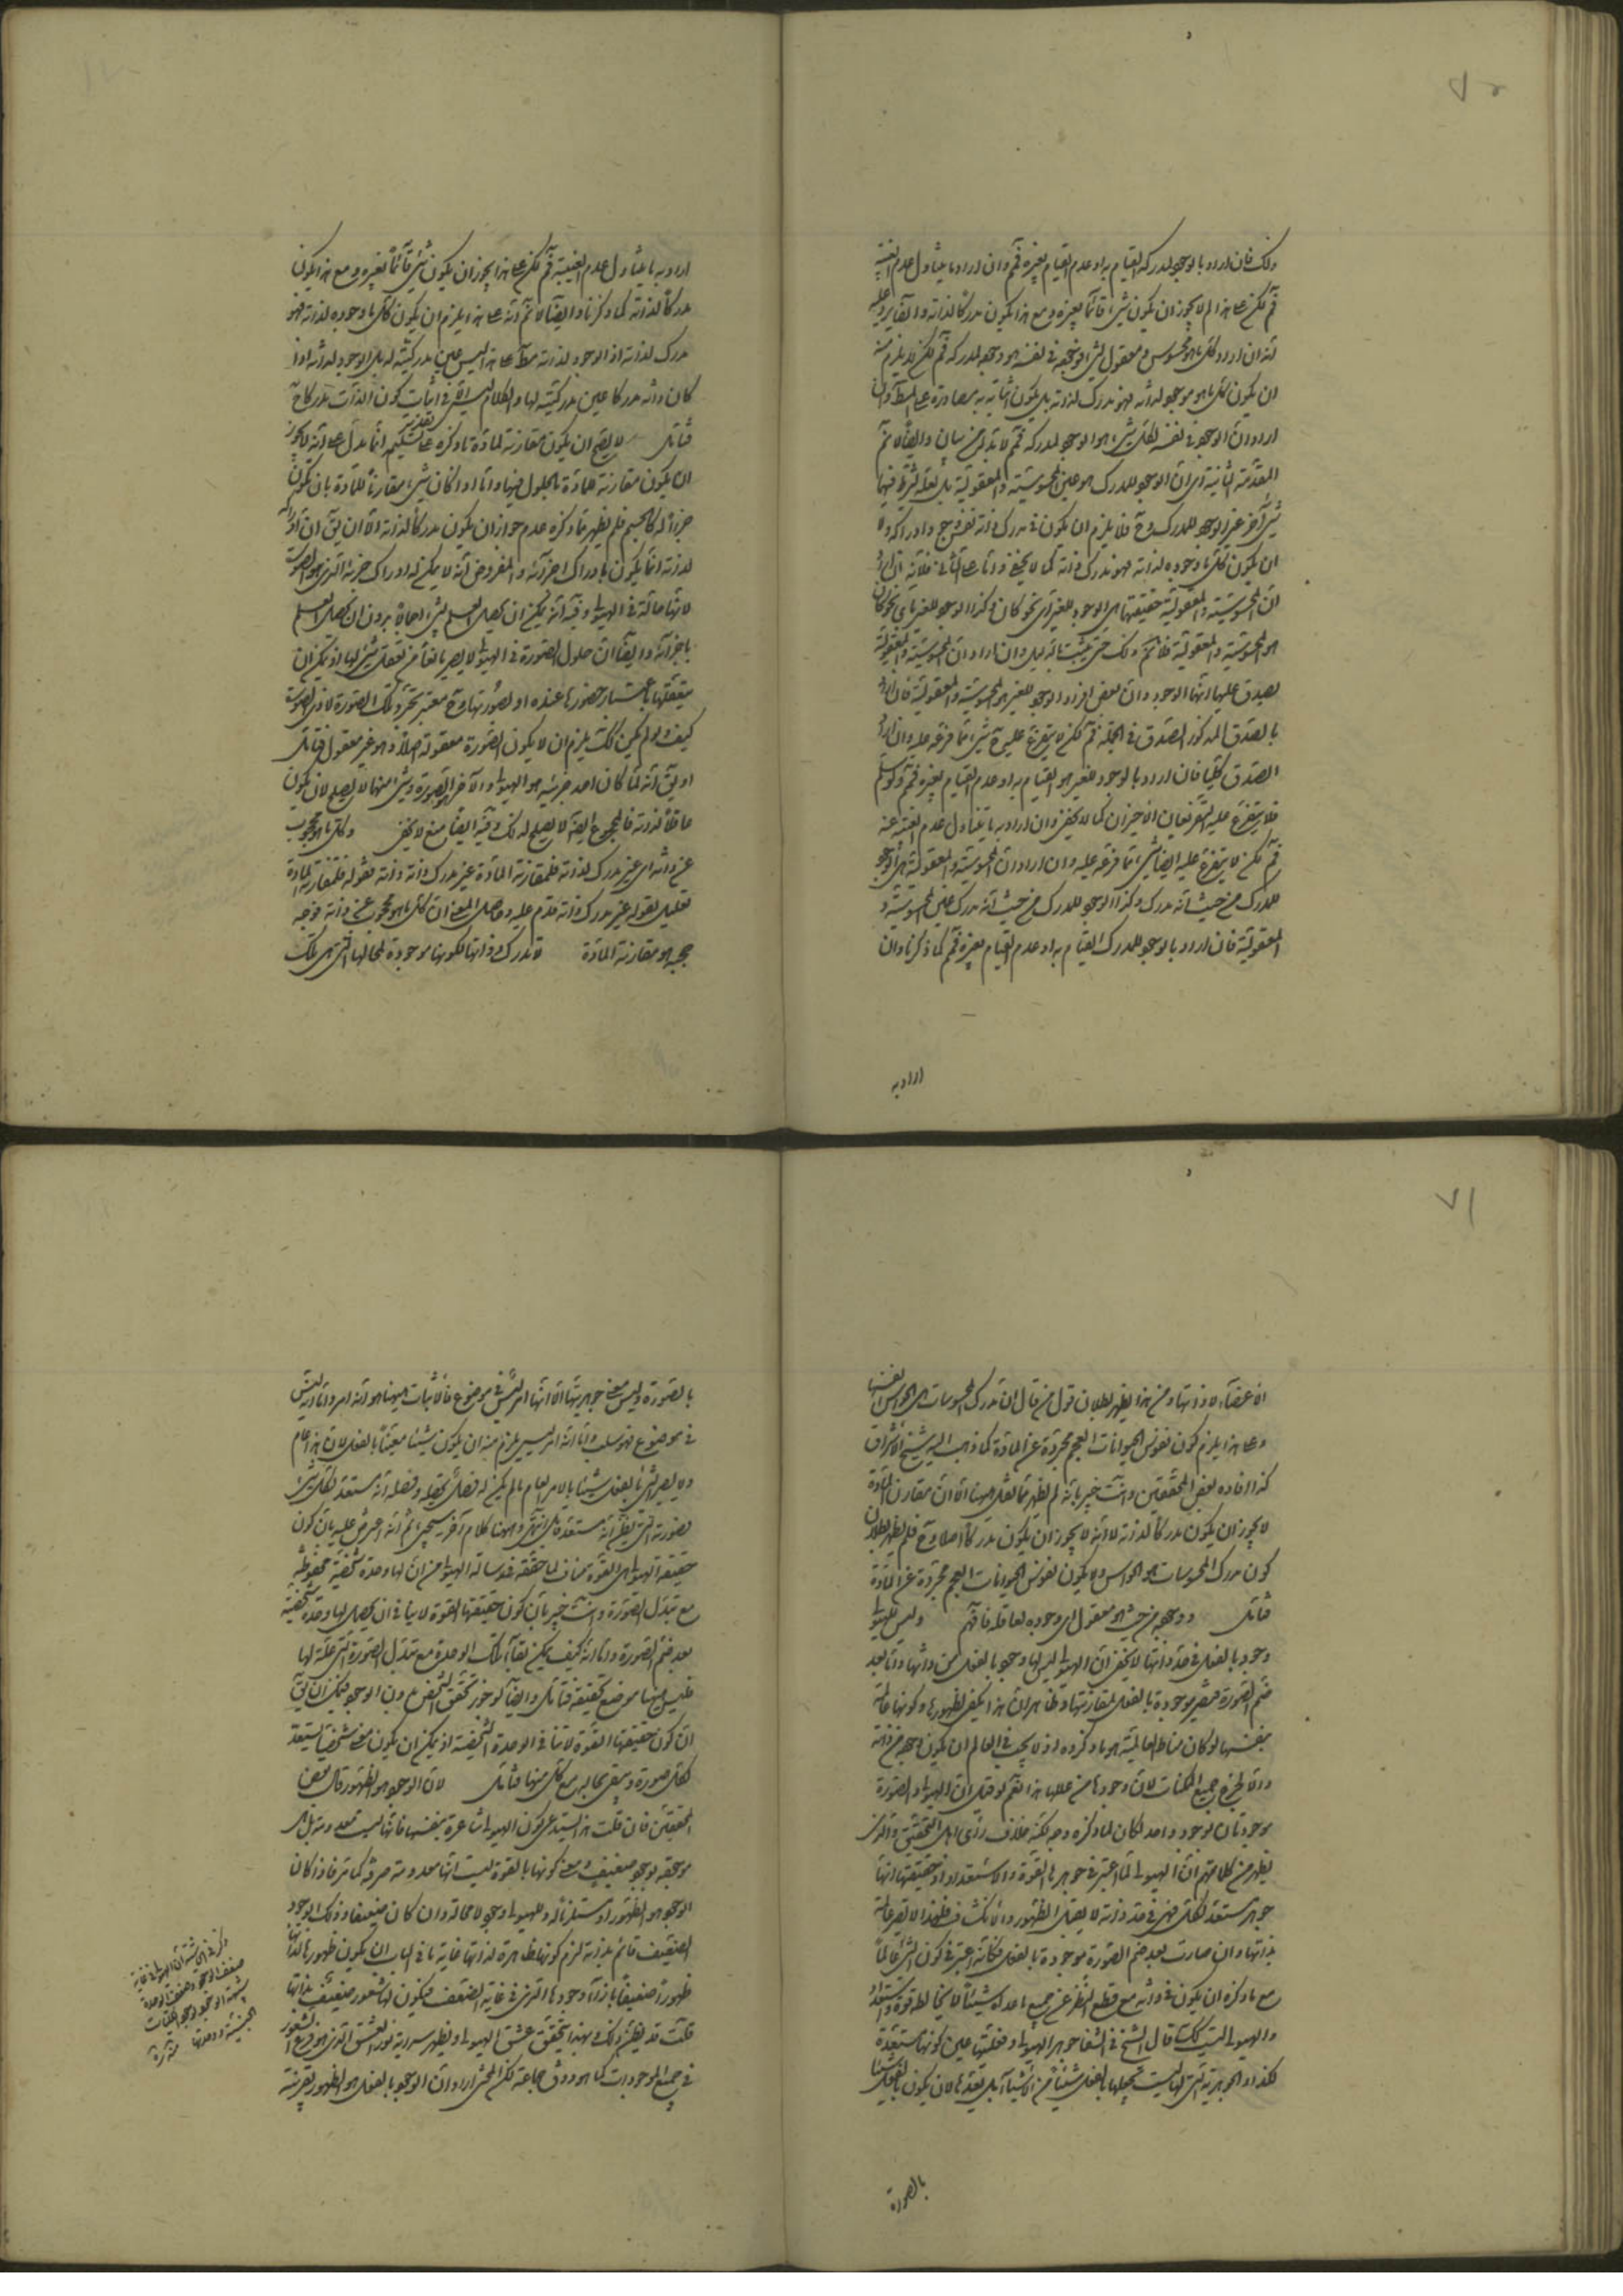 ذلك فان اراد بالوجود لمدركه القيام به او عدم القيام بغيره فم وان اراد ما يتناول عدم الغيبة
فم لكن على هذا لم لا يجوز ان يكون شيء قائما بغيره ومع هذا يكون مدركا لذاته وايضا يرد عليه
انه ان اراد كل ما هو محسوس او معقول لشيء فوجوده في نفسه هو وجوده لمدركه فم لكن لا يلزم منه
ان يكون كل ما هو موجود لذاته فهو مدرك لذاته بل يكون اثباته به مصادرة على المط وان
اراد ان الوجود في نفسه لكل شيء هو الوجود لمدركه فم لا بد له من بيان وايضا لا نم
المقدمة الثانية اى ان الوجود للمدرك هو عين المحسوسية والمعقولية بل لعله شرط فيها
شيء آخر غير الوجود للمدرك وح فلا يلزم ان يكون مدرك ذاته نفس وجوده او ادراكه ولا
ان يكون كل ما وجوده لذاته فهو مدرك ذاته كما لا يخفى واما على الثاني فلانه ان اراد
ان المحسوسية والمعقولية حقيقتها هي الوجود للغير اى نحو كان وكذا الوجود للغير باى نحو كان
هو المحسوسية والمعقولية فلا نم ذلك حتى يثبت بالدليل وان اراد ان المحسوسية والمعقولية
يصدق عليها انها الوجود وان بعض افراد الوجود للغير هو المحسوسية والمعقولية فان اراد
بالصدق المذكور الصدق في الجملة فم لكن لا يتفرع عليه شيء مما فرعه عليه وان اراد
الصدق كليا فان اراد بالوجود للغير هو القيام به او عدم القيام بغيره فم ولو سلم
فلا يتفرع عليه التفريعان الاخيران كما لا يخفى وان اراد به ما يتناول عدم الغيبة عنه
فم لكن لا يتفرع عليه ايضا شيء مما فرعه عليه وان اراد ان المحسوسية والمعقولية هي الوجود
للمدرك من حيث انه مدرك وكذا الوجود للمدرك من حيث انه مدرك عين المحسوسية و
المعقولية فان اراد بالوجود للمدرك القيام به او عدم القيام بغيره فم كما ذكرنا وان
اراد به
اراد به ما يتناول عدم الغيبة فم لكن على هذا يجوز ان يكون شيء قائما بغيره ومع هذا يكون
مدركا لذاته كما ذكرنا وايضا لا نم انه على هذا يلزم ان يكون كل ما وجوده لذاته فهو
مدرك لذاته اذ الوجود لذاته مط على هذا ليس عين مدركيته له بل الوجود لذاته اذا
كان ذاته مدركا عين مدركيته لها والكلام في اثبات كون الذات مدركا ح
فتامل لا يصح ان يكون مقارنة لمادة ما ذكره على تقدير تسليمه انما يدل على انه لا يجوز
ان يكون مقارنة لمادة بالحلول فيها واما اذا كان شيء مقارنا للمادة بان يكون
جزءا له كالجسم فلم يظهر مما ذكره عدم جواز ان يكون مدركا لذاته الا ان يق ان ادراكه
لذاته انما يكون بادراك اجزائه والمفروض انه لا يمكن له ادراك جزئه الذي هو الصورة
لانها حالة في الهيولى وفيه انه يمكن ان يحصل العلم بشيء اجمالا بدون ان يحصل العلم
باجزائه وايضا ان حلول الصورة في الهيولى لا يصير مانعا من تعقل شيء لها اذ يمكن ان
يتعقلها باعتبار حضورها عنده او تصورتها وح معتبر تجرد تلك الصورة لا ذي الصورة
كيف ولو لم يكن كذلك يلزم ان لا يكون الصورة معقولة اصلا وهو غير معقول فتامل
او يق انه لما كان احد جزئيه هو الهيولى والآخر الصورة وشيء منهما لا يصلح لان يكون
عاقلا لذاته فالمجموع ايضا لا يصلح لذلك وفيه ايضا منع لا يخفى وكل ما هو محجوب
عن ذاته اى غير مدرك لذاته فلمقارنة المادة غير مدرك ذاته ذاته بقوله فلمقارنة المادة
تعليل لقوله غير مدرك ذاته مقدم عليه وحاصل المعنى ان كل ما هو محجوب عن ذاته فوجه
حجبه هو مقارنة المادة لا تدرك ذواتها لكونها موجودة لمحالها التي هي تلك
الاعضاء لا ذواتها ومن هذا يظهر بطلان قول من قال ان مدرك المحسوسات هي الحواس انفسها
وعلى هذا يلزم كون نفوس الحيوانات العجم مجردة عن المادة كما ذهب اليه شيخ الاشراق
كذا افاده بعض المحققين وانت خبير بانه لم يظهر مما نقل ههنا الا ان مقارن المادة
لا يجوز ان يكون مدركا لذاته لا انه لا يجوز ان يكون مدركا اصلا وح فلم يظهر بطلان
كون مدرك المحسوسات هو الحواس ولا يكون نفوس الحيوانات العجم مجردة عن المادة
فتامل ووجوده من حيث هو معقول اى وجوده لعاقله فافهم وليس للهيولى
وجود بالفعل في حد ذاتها لا يخفى ان الهيولى ليس لها وجود بالفعل من ذاتها واما بعد
ضم الصورة فتصير موجودة بالفعل لمقارنتها وظاهر ان هذا يكفى لظهورها وكونها عالمة
بنفسها لو كان مناط العالمية هو ما ذكروه اذ لا يجب في العالم ان يكون وجوده من ذاته
والا لخرج جميع الممكنات لان وجودها من عللها هذا نعم لو قيل ان الهيولى والصورة
موجودتان بوجود واحد لكان لما ذكره وجه لكنه خلاف رأى اهل التحقيق والذى
يظهر من كلامهم ان الهيولى لما اعتبر في جوهرها القوة والاستعداد اذ حقيقتها انها
جوهر مستعد لكل فهى في حد ذاته لا يصلح الظهور والانكشاف فلهذا لا تصير عالمة
بذاتها وان صارت بعد ضم الصورة موجودة بالفعل فكانه اعتبر في كون الشيء عالما
مع ما ذكره ان يكون في ذاته مع قطع النظر عن جميع ما عداه شيئا لا يخالطه قوة واستعداد
والهيولى ليست كك قال الشيخ في الشفا جوهر الهيولى وفعليتها عين كونها مستعدة
لكذا والجوهرية التي لها ليست تجعلها بالفعل شيئا من الاشياء بل تعدها لان يكون بالفعل شيئا
بالصورة
بالصورة وليس معنى جوهريتها الا انها امر ليس في موضوع فالاثبات ههنا هو انه امر واما انه ليس
في موضوع فهو سلب واما انه امر ليس يلزم منه ان يكون شيئا معينا بالفعل لان هذا عام
ولا يصير الشيء بالفعل شيئا بالامر العام ما لم يكن له فصل يحصله وفصله انه مستعد لكل شيء
فصورته التي يظن انه مستعد قابل انتهى وههنا كلام آخر سيجيء ثم انه اعترض عليه بان كون
حقيقة الهيولى هي القوة مناف لما حققه في رسالة الهيولى من ان لها وحدة شخصية محفوظة
مع تبدل الصورة وانت خبير بان كون حقيقتها القوة لا ينافي ان يحصل لها وحدة شخصية
بعد ضم الصورة واما انه كيف يمكن بقاء تلك الوحدة مع تبدل الصورة التي علة لها
فليس ههنا موضع تحقيقه فتامل وايضا لو جوز تحقق التشخص بدون الوجود فيمكن ان يق
ان كون حقيقتها القوة لا ينافي الوحدة الشخصية اذ يمكن ان يكون معنى شخصيا يستعد
لكل صورة ويبقى بحاله مع كل منها فتامل لان الوجود هو الظهور قال بعض
المحققين فان قلت هذا يستدعى كون الهيولى شاعرة بنفسها فانها ليست معدومة بل هى
موجودة بوجود ضعيف ومعنى كونها بالقوة ليست انها معدومة صرفة كما مر فاذا كان
الوجود هو الظهور او مستلزما له وللهيولى وجود لا محالة وان كان ضعيفا وذلك الوجود
الضعيف قائم بذاته لزم كونها ظاهرة لذاتها غاية ما في الباب ان يكون ظهورها لذاتها
ظهورا ضعيفا بازاء وجودها الذي في غاية الضعف فيكون لها شعور ضعيف بذاتها
قلت قد يظن ذلك وبهذا يتحقق عشق الهيولى ويظهر سراية نور العشق الذي هو فرع الشعور
في جميع الموجودات كما هو ذوق جماعة لكن المحشى اراد ان الوجود بالفعل هو الظهور بقرينة
ذكر في الحاشية ان الهيولى في غاية
ضعف الوجود وضعف الوحدة
الجنسية ووحدتها